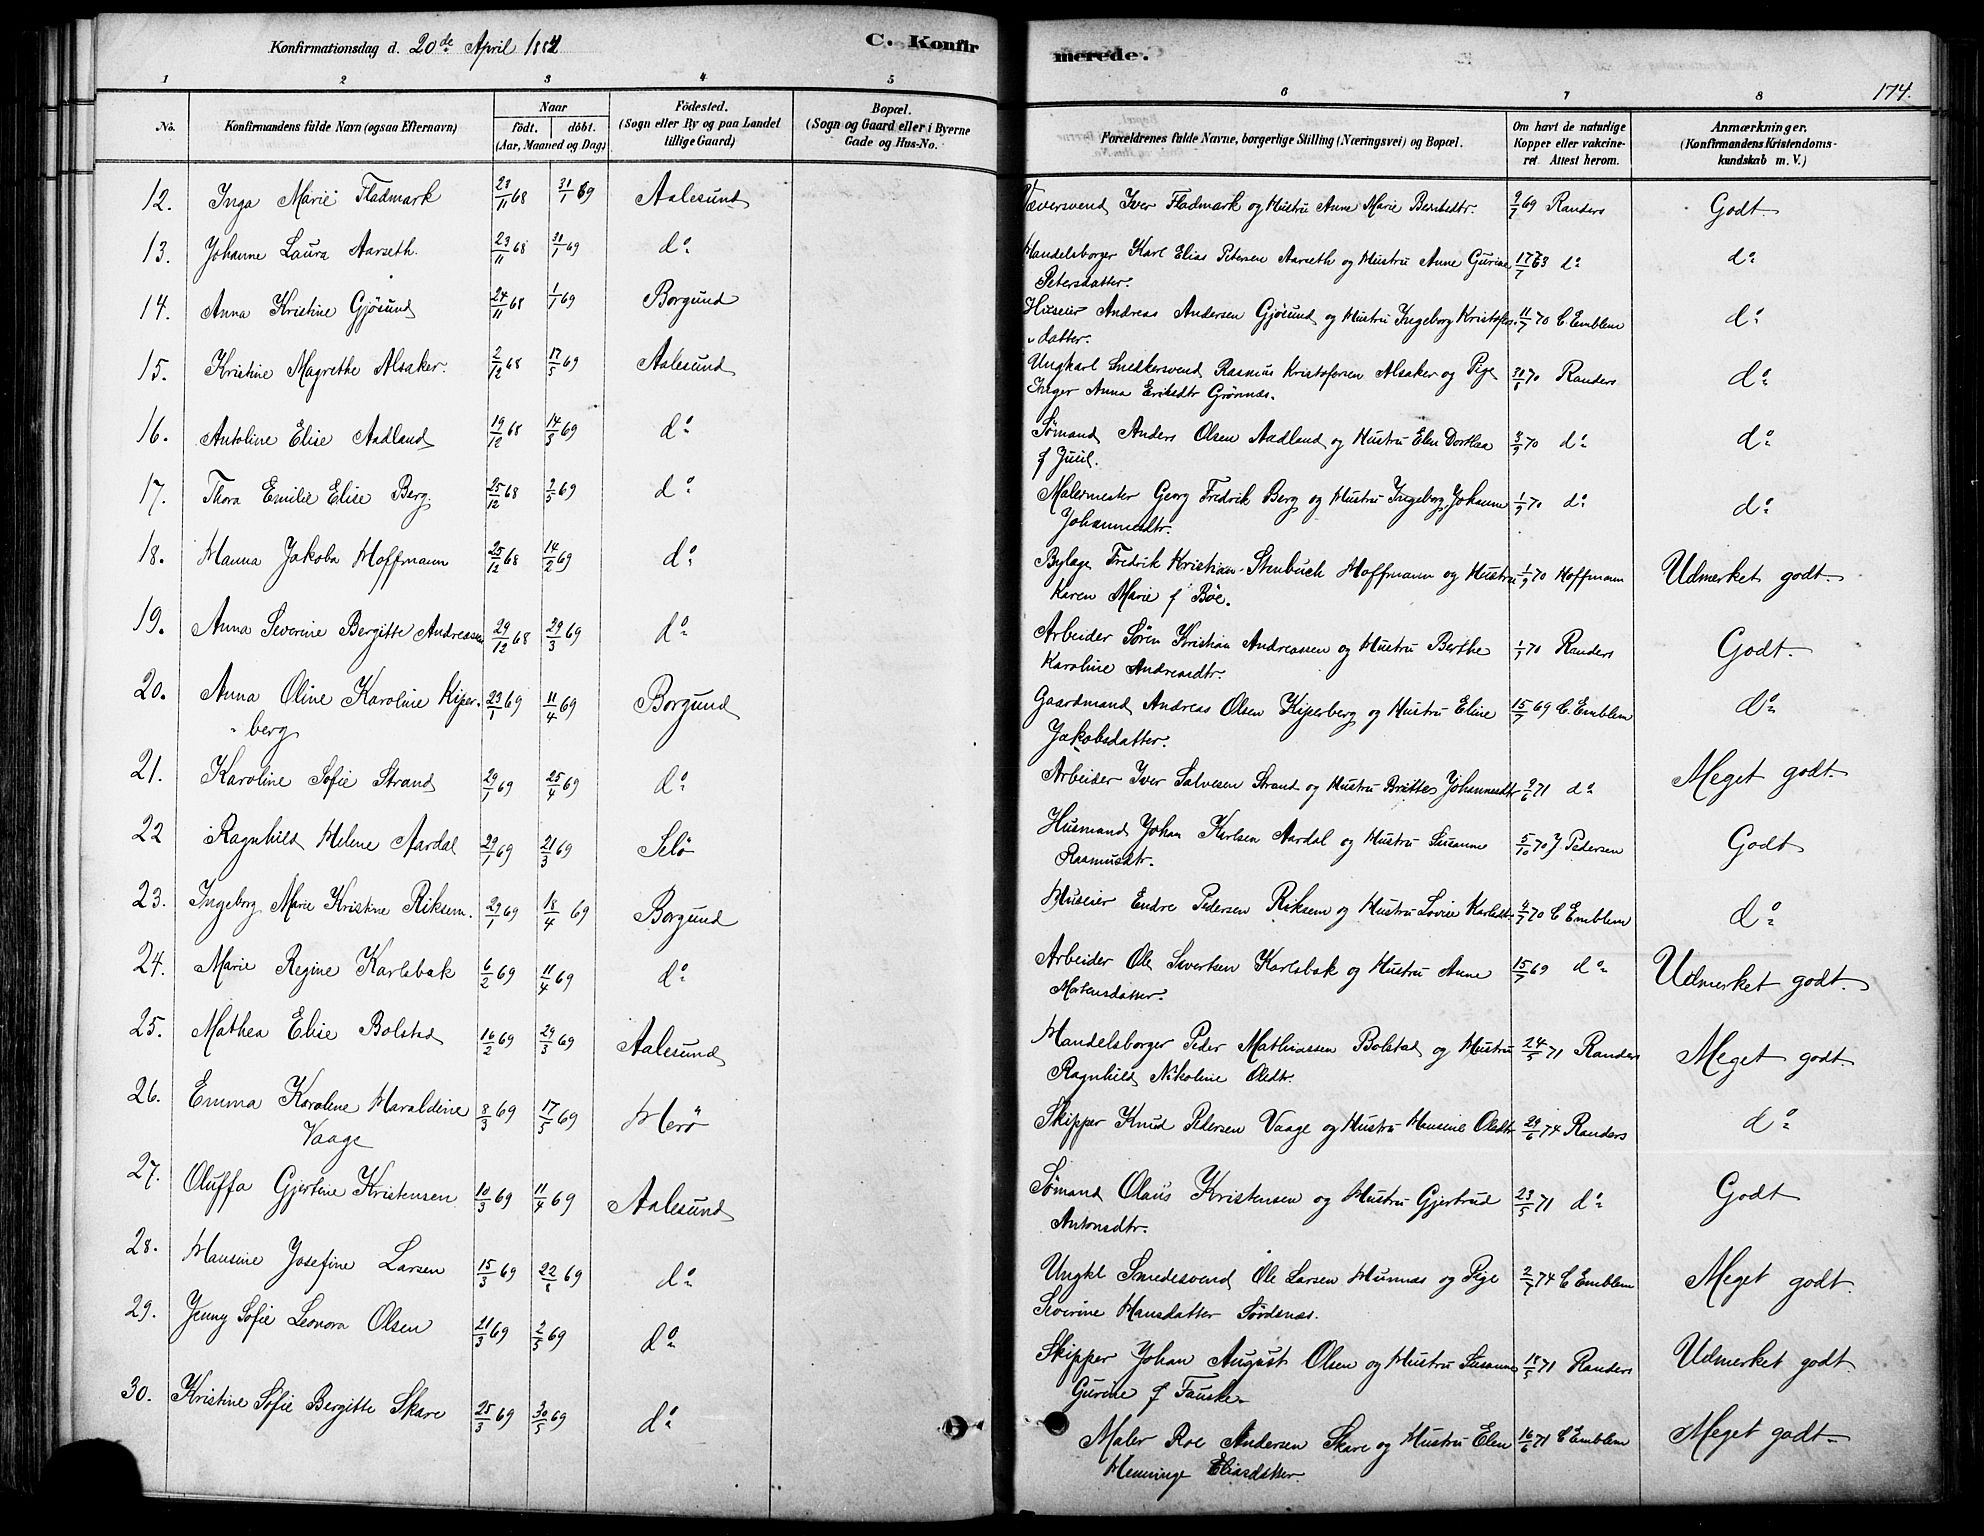 Konfirmationsdag d. 20de April 1884
C. Konfir
merede.
174.
1 2 3 4 5 6 7 8
No.
Konfirmandens fulde Navn (ogsaa Efternavn)
Naar
födt. döbt.
(Aar, Maaned og Dag)
Födested.
(Sogn eller By og paa Landet
tillige Gaard)
Bopæl.
(Sogn og Gaard eller i Byerne
Gade og Hus-No.
Forældrenes fulde Navne, borgerlige Stilling (Næringsvei) og Bopæl.
Om havt de naturlige
Kopper eller vakcine-
ret. Attest herom.
Anmærkninger.
(Konfirmandens Kristendoms-
kundskab m. V.)
12. Inga Marie Fladmark 23/11 68 31/1 69 Aalesund Væversvend Iver Fladmark og Hustru Anne Marie Berntsdtr. 9/7 69 Randers Godt
13. Johanne Laura Aarseth. 23/11 68 31/1 69 do Handelsborger Karl Elias Petersen Aarseth og Hustru Anne Gurine 17/7 do do
Petersdatter.
14. Anna Kristine Gjösund 24/11 68 1/1 69 Borgund Huseier Andreas Andersen Gjösund og Hustru Ingeborg Kristofers- 11/7 70 C. Emblem do
datter.
15. Kristine Magrethe Alsaker. 2/12 68 17/5 69 Aalesund Ungkarl Snedkersvend Rasmus Kristofersen Alsaker og Pige 30/6 70 Randers do
Inger Anna Eriksdtr Grönnæs.
16. Antoline Elise Aadland 19/12 68 14/3 69 do Sömand Anders Olsen Aadland og Hustru Elen Dorthea 3/9 70 do do
f Juul.
17. Thora Emilie Elise Berg. 25/12 68 2/5 69 do Malermester Georg Fredrik Berg og Hustru Ingeborg Johanne 1/9 70 do do
Johannesdtr.
18. Hanna Jakoba Hoffmann 25/12 68 14/2 69 do Bylæge Fredrik Kristian Stenbuch Hoffmann og Hustru 1/9 70 Hoffmann Udmerket godt.
Karen Marie f Böe.
19. Anna Severine Bergitte Andreasen 29/12 68 29/3 69 do Arbeider Sören Kristian Andreassen og Hustru Berthe 1/9 70 Randers Godt.
Karoline Andreasdtr.
20. Anna Oline Karoline Kiper- 23/1 69 11/4 69 Borgund Gaardmand Andreas Olsen Kiperberg og Hustru Eline 15/7 69 C. Emblem do
berg Jakobsdatter.
21. Karoline Sofie Strand 29/1 69 25/4 69 do Arbeider Iver Salvesen Strand og Hustru Brittes Johannesdtr 9/6 71 do Meget godt.
22 Ragnhild Helene Aardal 29/1 69 21/3 69 Selö Husmand Johan Karlsen Aardal og Hustru Susanne 5/10 70 J Pedersen Godt
Rasmusdtr.
23. Ingeborg Marie Kristine Riksem. 29/1 69 18/4 69 Borgund Huseier Endre Pedersen Riksem og Hustru Lovise Karlsdtr 4/7 70 C Emblem do
24. Marie Regine Karlsbak 6/2 69 11/4 69 do Arbeider Ole Sivertsen Karlsbak og Hustru Anne 15/7 69 do Udmerket godt.
Mortensdatter.
25. Mathea Elise Bolstad 16/2 69 29/3 69 Aalesund Handelsborger Peder Mathiassen Bolstad og Hustru 24/5 71 Randers Meget godt
Ragnhild Nikoline Olsdtr.
26. Emma Karoline Haraldine 8/3 69 17/5 69 Herö Skipper Knud Pedersen Vaage og Hustru Hansine Olsdtr 29/6 74 Randers do
Vaage
27. Oluffa Gjertine Kristensen 10/3 69 11/4 69 Aalesund Sömand Olaus Kristensen og Hustru Gjertrud 23/5 71 do Godt
Antonsdtr.
28. Hansine Josefine Larsen 15/3 69 22/8 69 do Ungkl Smedesvend Ole Larsen Hunnæs og Pige 2/7 74 C Emblem Meget godt.
Severine Hansdatter Sördenæs.
29. Jenny Sofie Leonora Olsen 21/3 69 2/5 69 do Skipper Johan August Olsen og Hustru Susanne 18/5 71 Randers Udmerket godt
Gurine f Fauske
30. Kristine Sofie Bergitte Skare 25/3 69 30/5 69 do Maler Roe Andersen Skare og Hustru Elen 16/6 71 C Emblem Meget godt.
Henninge Eliasdatter.